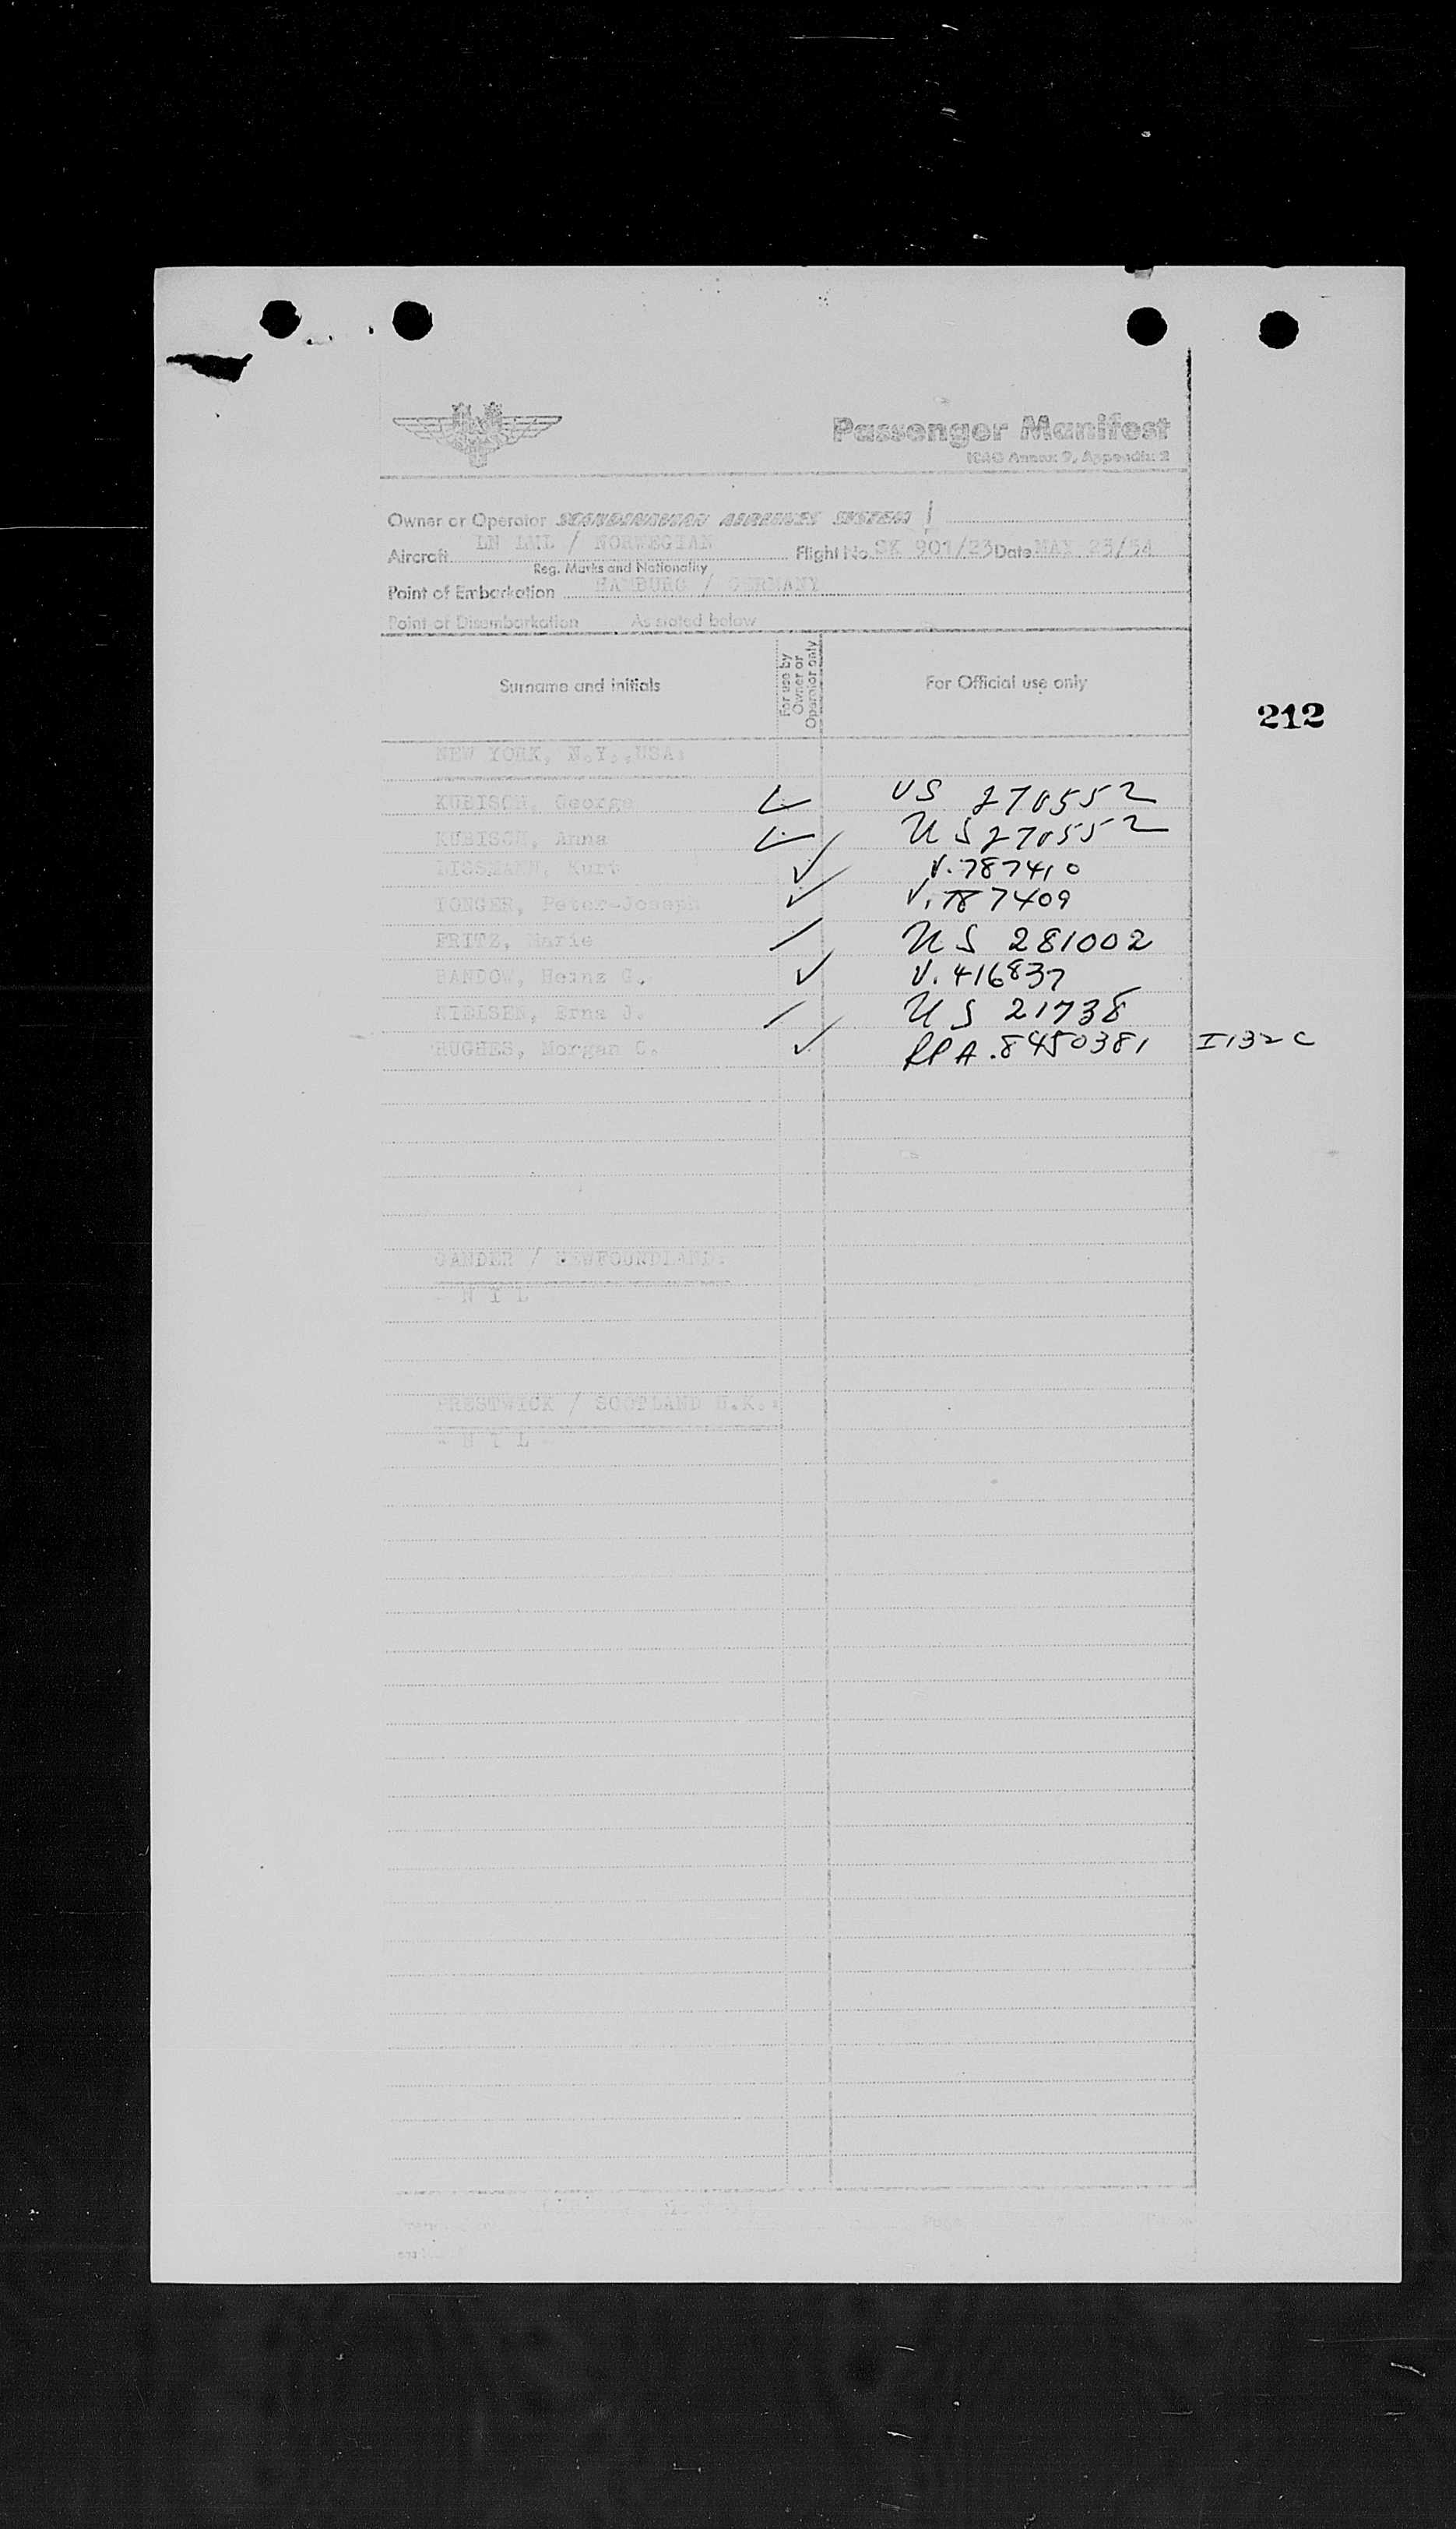 Passenger Manifest
ICAO Annex 9, Appendix 2
Owner or Operator SCANDINAVIAN AIRLINES SYSTEM
Aircraft LN LML / NORWEGIAN Flight No. SK 901/23 Date MAY 23/54
Reg. Marks and Nationality
Point of Embarkation HAMBURG / GERMANY
Point of Disembarkation As stated below
Surname and initials For use by Owner or Operator only For Official use only
212
NEW YORK, N.Y.,USA:
KUBISCH, George US 270552
KUBISCH, Anna US 270552
Kurt V. 787410
TONGER, Peter-Joseph V. 787409
FRITZ, Marie US 281002
BANDOW, Heinz G. V. 416837
NIELSEN, Erna J. US 21738
HUGHES, Morgan C. RPA. 8450381 I132C
GANDER / NEWFOUNDLAND:
- N I L
PRESTWICK / SCOTLAND U.K.:
- N I L